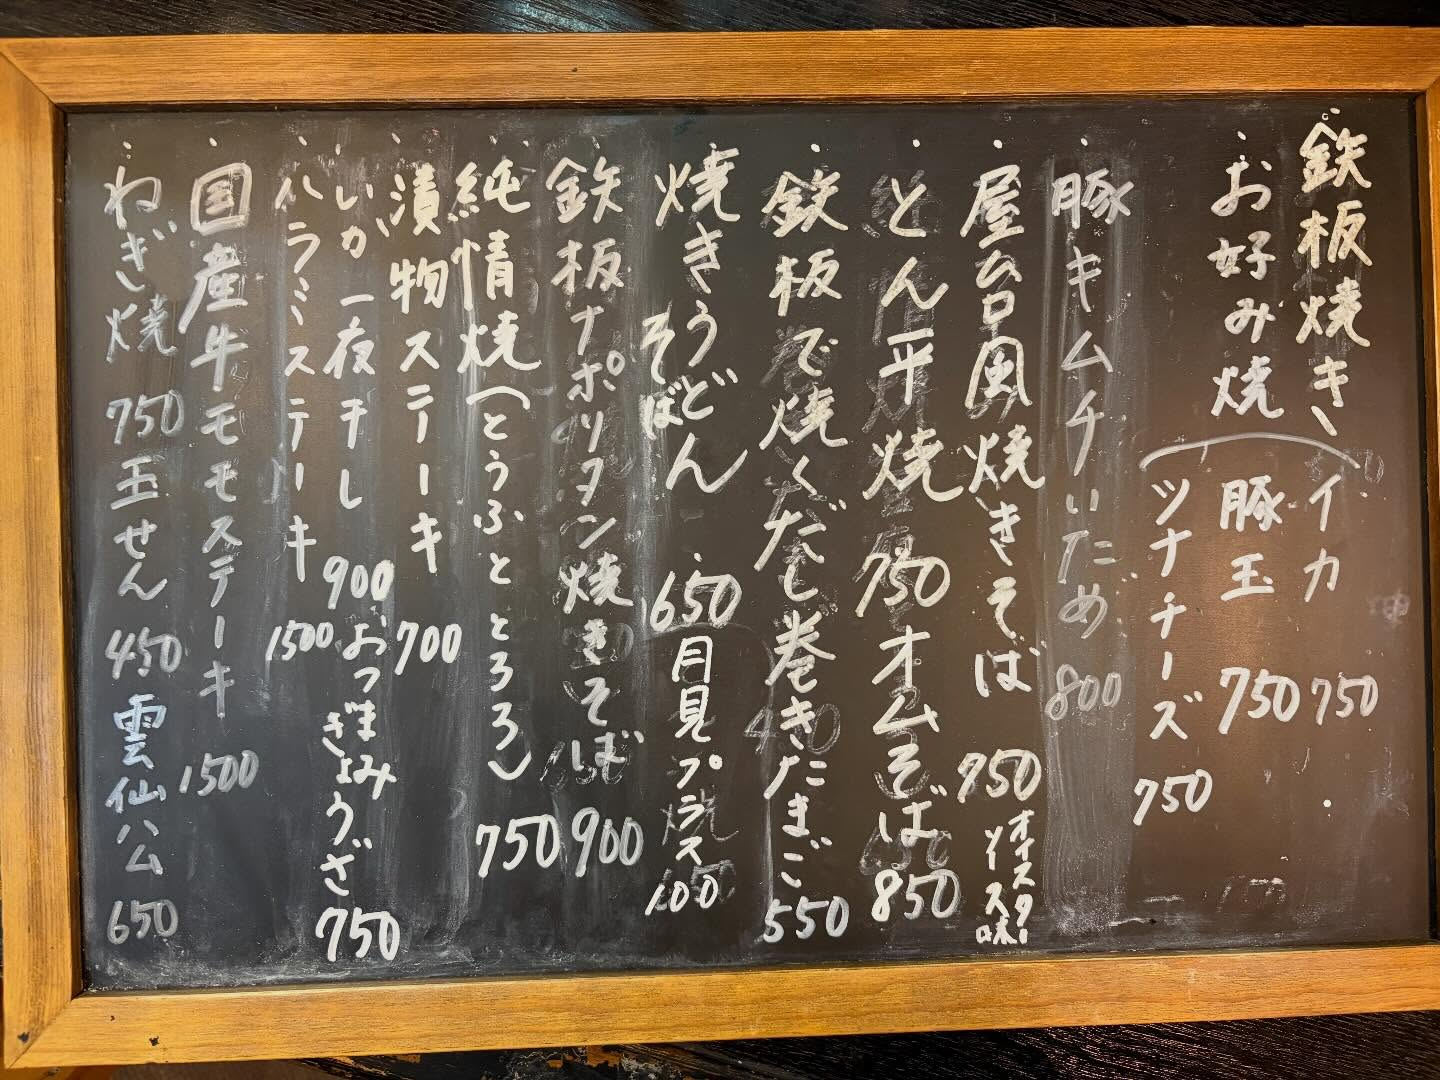 鉄板焼き
イカ 750
お好み焼 豚玉 750
ツナチーズ 750
豚キムチいため 800
屋台風焼きそば 750 オイスターソース味
とん平焼 750 オムそば 850
鉄板で焼くだし巻きたまご 550
焼きうどん 650 月見プラス 100
そば
鉄板ナポリタン焼きそば 900
純情焼(とうふととろろ) 750
漬物ステーキ 700
いか一夜干し 900 おつまみぎょうざ 750
ハラミステーキ 1500
国産牛モモステーキ 1500
ねぎ焼 750 玉せん 450 雲仙ハム 650